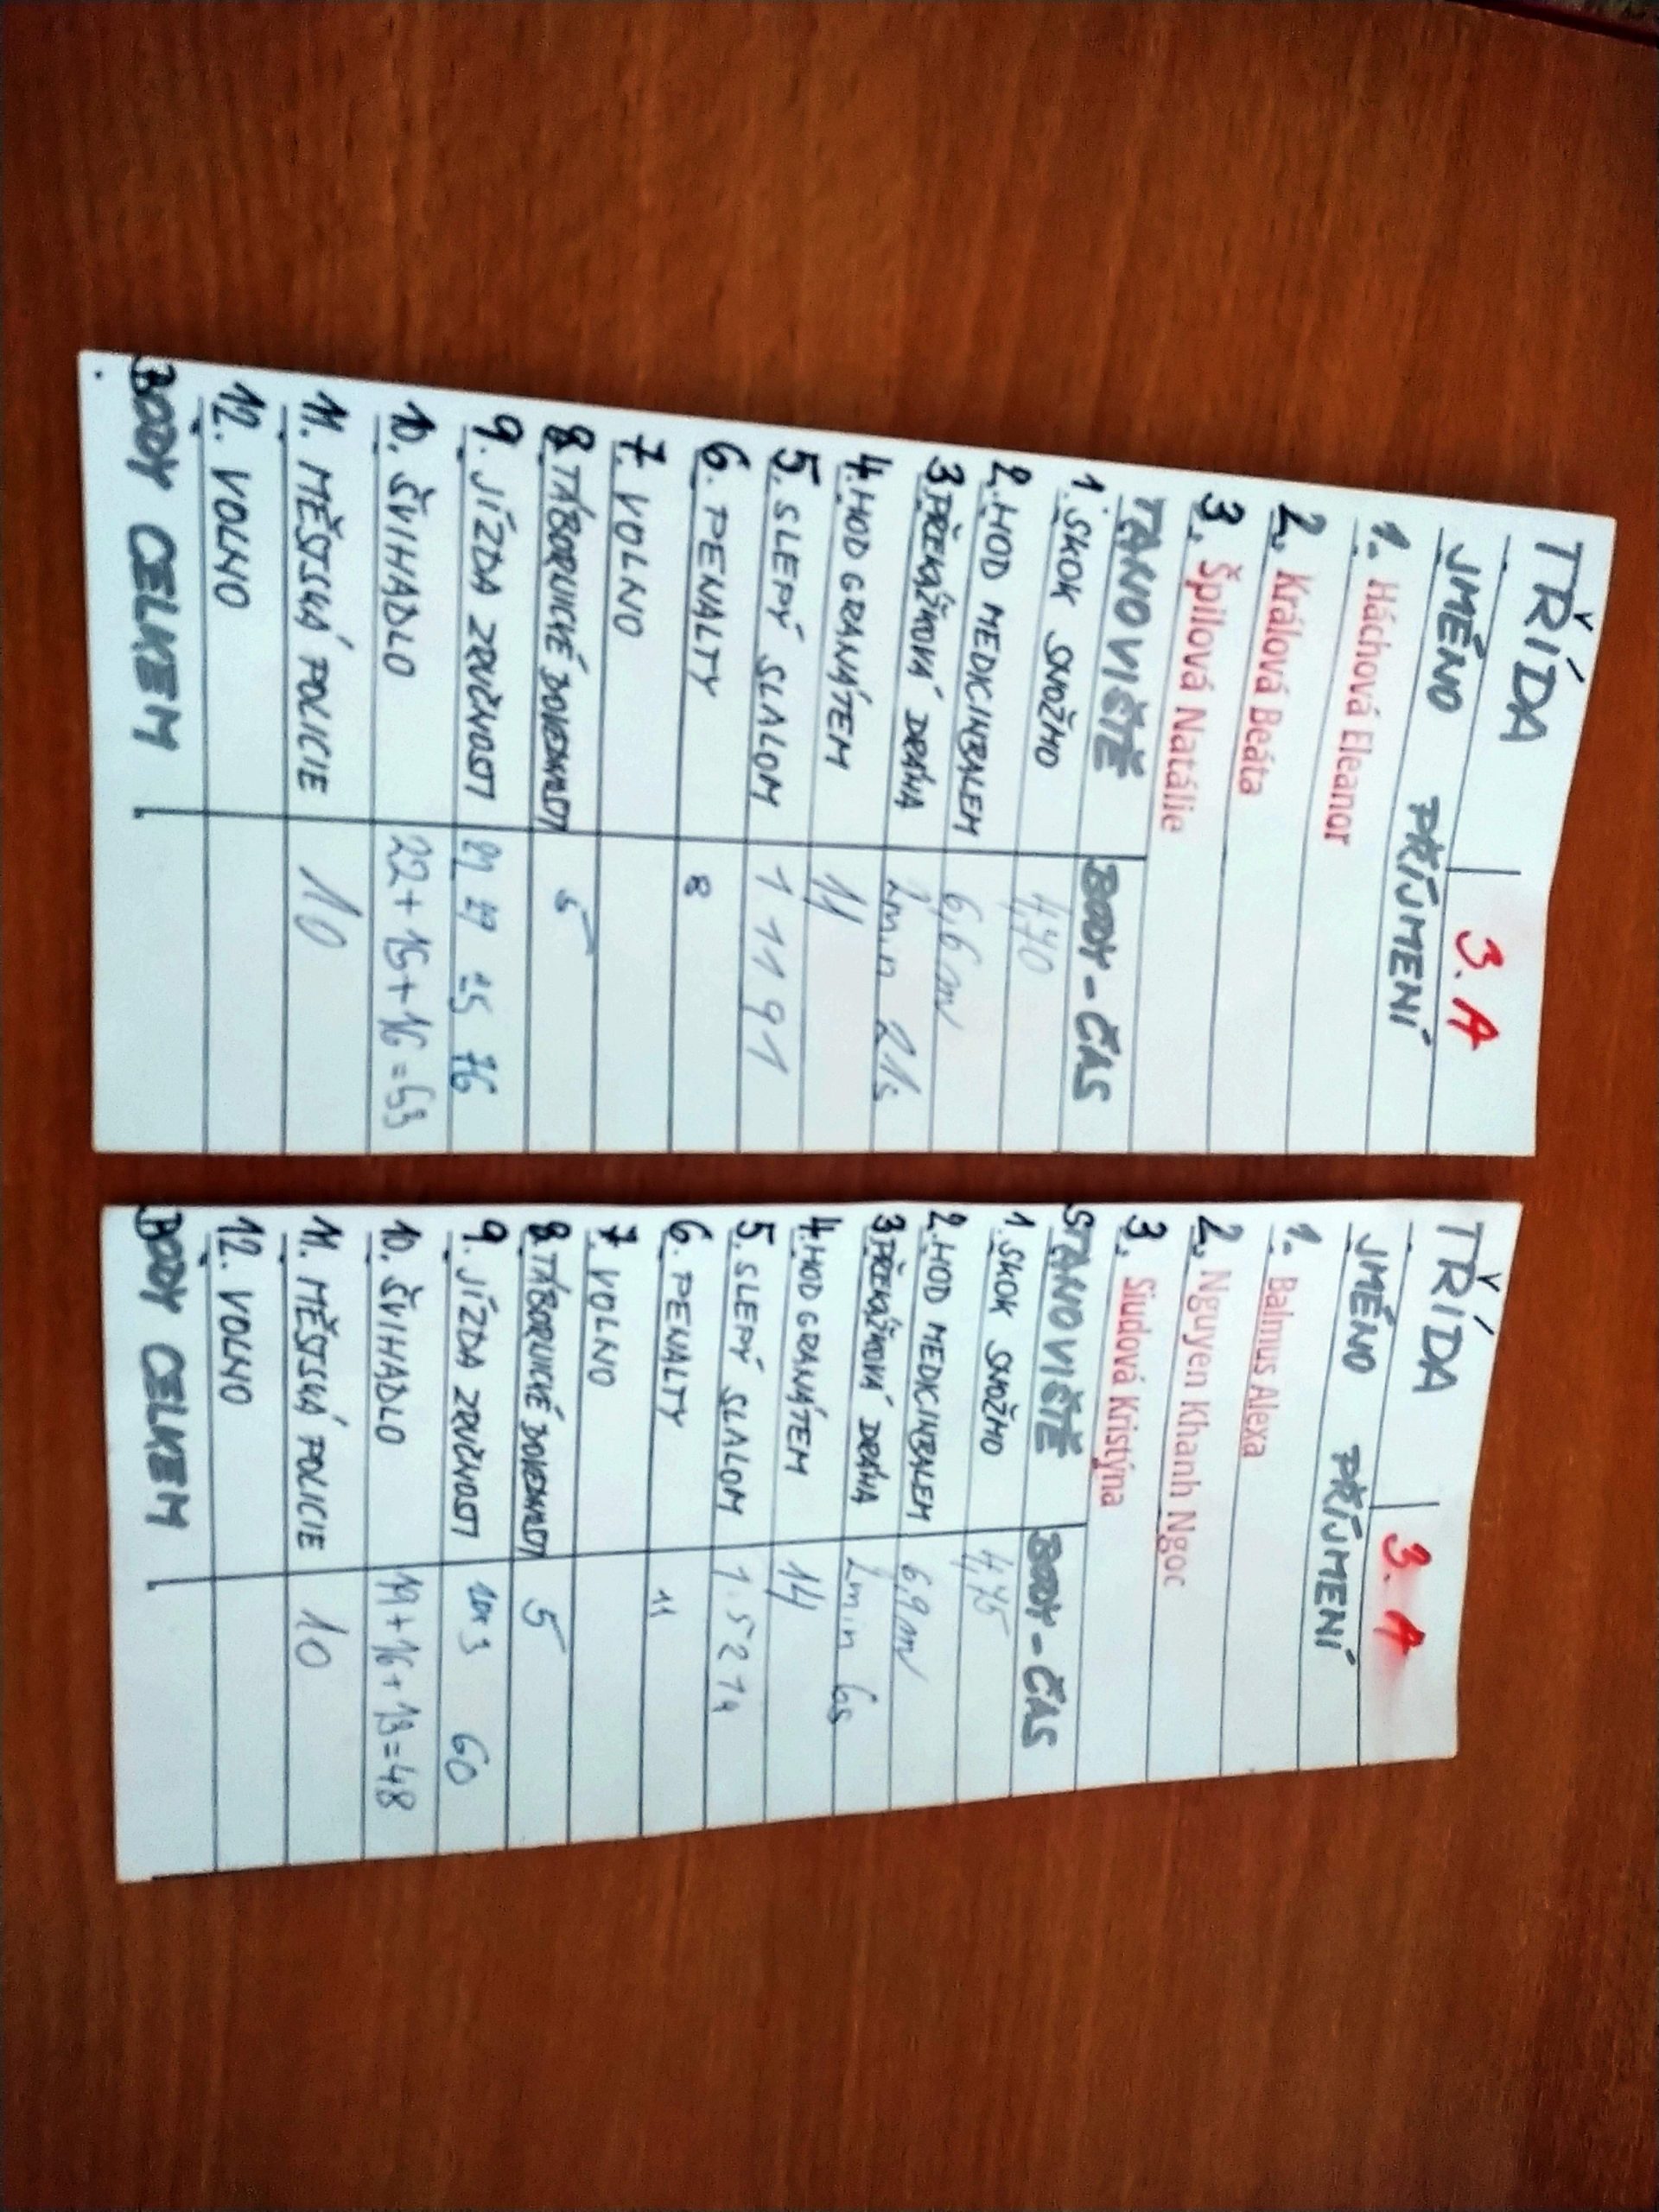 TŘÍDA 3. A
JMÉNO PŘÍJMENÍ
1. Háchová Eleanor
2. Králová Beáta
3. Špilová Natálie
TANOVIŠTĚ BODY - ČAS
1. SKOK SNOŽMO 4,40
2. HOD MEDICINBALEM 6,6 m
3 PŘEKÁŽKOVÁ DRÁHA 2min 21s
4. HOD GRANÁTEM 11
5. SLEPÝ SLALOM 1 11 91
6. PENALTY 8
7. VOLNO
8. TÁBORNICKÉ DOVEDNOSTI 5
9. JÍZDA ZRUČNOSTI 76
10. ŠVIHADLO 22+15+16=53
11. MĚSTSKÁ POLICIE 10
12. VOLNO
BODY CELKEM
TŘÍDA 3. A
JMÉNO PŘÍJMENÍ
1. Balmus Alexa
2. Nguyen Khanh Ngoc
3. Siudová Kristýna
STANOVIŠTĚ BODY - ČAS
1. SKOK SNOŽMO 4,45
2. HOD MEDICINBALEM 6,9 m
3 PŘEKÁŽKOVÁ DRÁHA 2min 6s
4. HOD GRANÁTEM 14
5. SLEPÝ SLALOM 1.5214
6. PENALTY 11
7. VOLNO
8. TÁBORNICKÉ DOVEDNOSTI 5
9. JÍZDA ZRUČNOSTI 60
10. ŠVIHADLO 19+16+13=48
11. MĚSTSKÁ POLICIE 10
12. VOLNO
BODY CELKEM